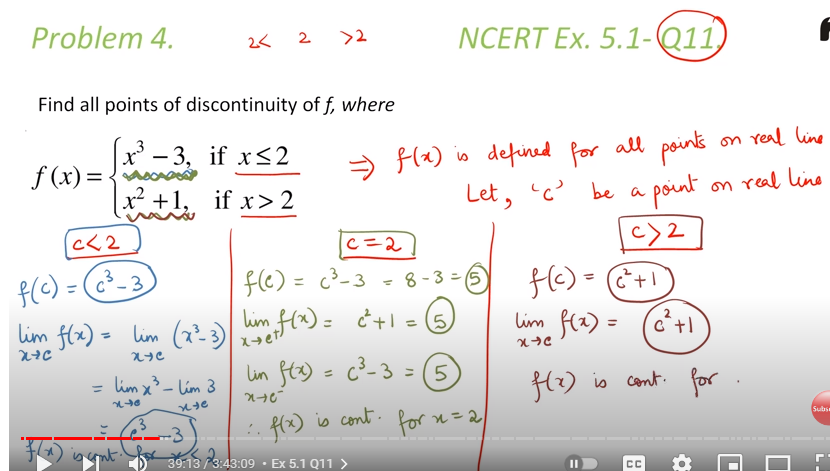 Problem 4.
2< 2 >2
NCERT Ex. 5.1- Q11.
Find all points of discontinuity of f, where
f(x) = { x³ − 3, if x ≤ 2
x² + 1, if x > 2
⇒ f(x) is defined for all points on real line
Let, 'c' be a point on real line
c < 2
f(c) = c³ − 3
lim x→c f(x) = lim x→c (x³ − 3)
= lim x→c x³ − lim x→c 3
= c³ − 3
f(x) is cont. for x < 2
c = 2
f(c) = c³ − 3 = 8 − 3 = 5
lim x→c⁺ f(x) = c² + 1 = 5
lim x→c⁻ f(x) = c³ − 3 = 5
∴ f(x) is cont. for x = 2
c > 2
f(c) = c² + 1
lim x→c f(x) = c² + 1
f(x) is cont. for
Subs
39:13 / 3:43:09 • Ex 5.1 Q11 >
CC